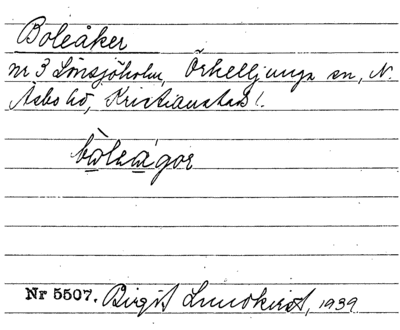 Boleåker
nr 3 Lönsjöholm, Örkelljunga sn, N.
Åsbo hd, Kristianstads l.
bòleågor
Nr 5507. Birgit Lundkvist, 1939